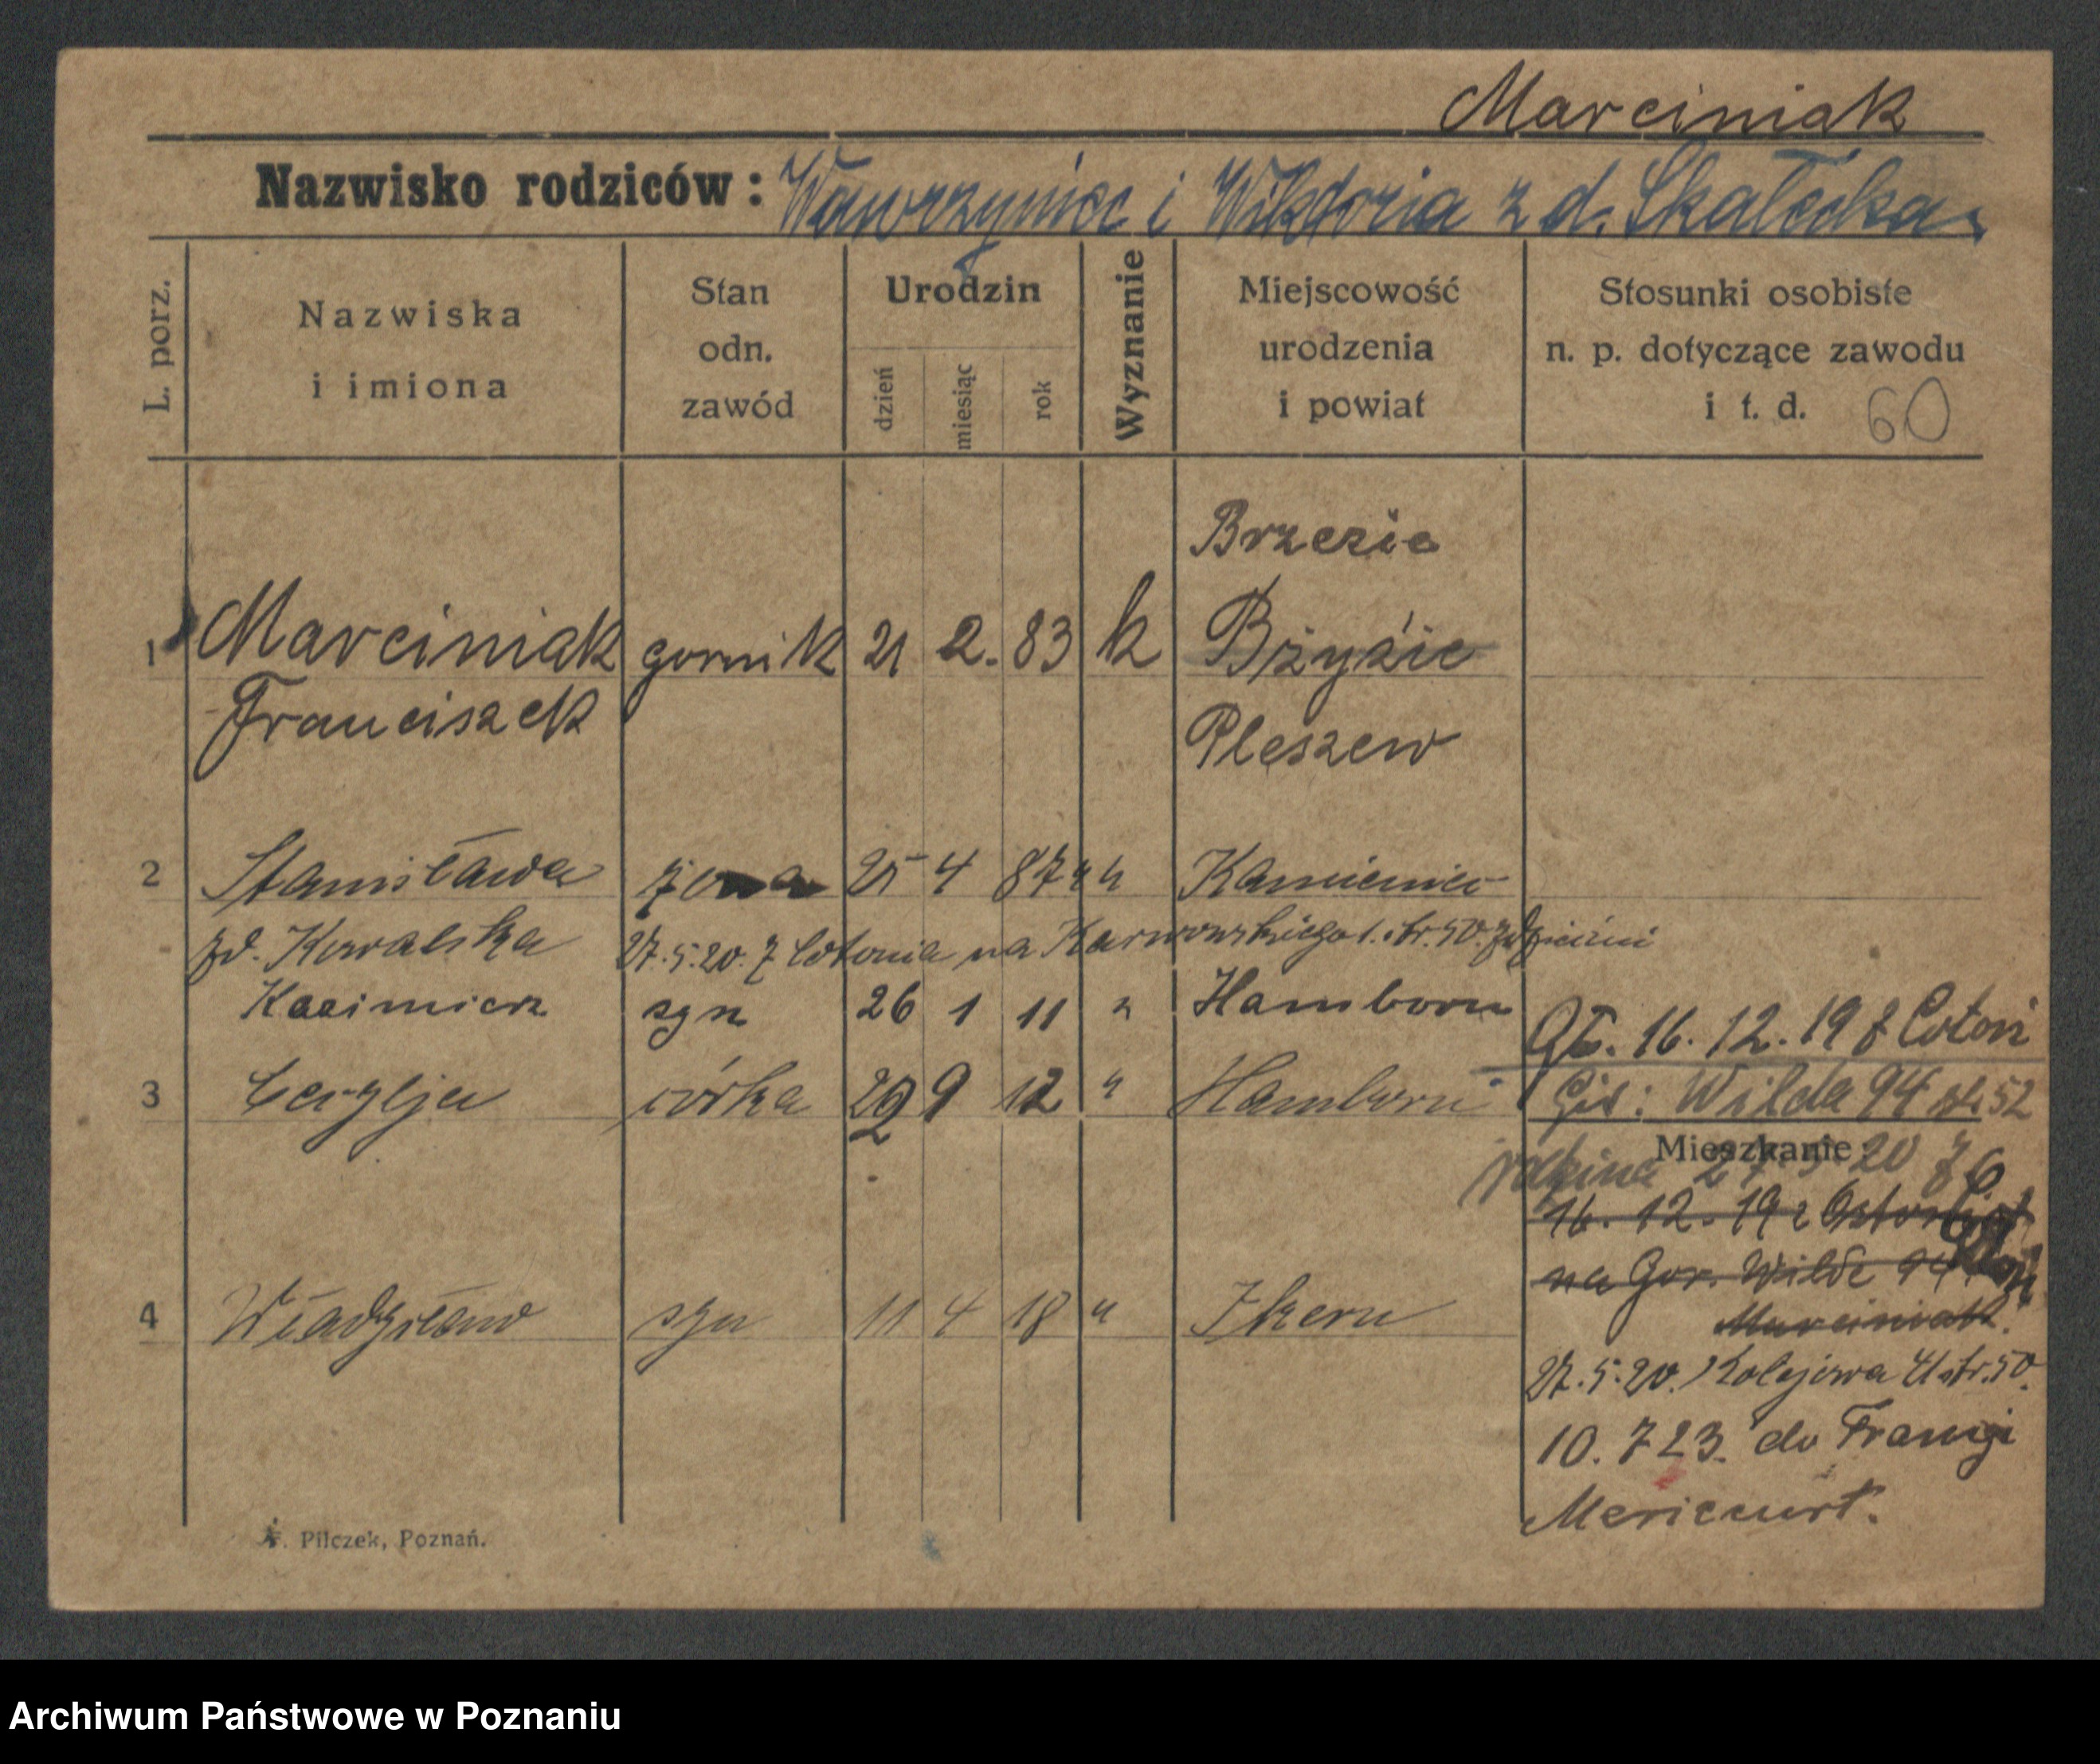 Marciniak
Nazwisko rodziców: Wawrzyniec i Wiktoria z d. Skałecka
L. porz.
Nazwiska i imiona
Stan odn. zawód
Urodzin
dzień
miesiąc
rok
Wyznanie
Miejscowość urodzenia i powiat
Stosunki osobiste n. p. dotyczące zawodu i t. d. 60
Brzezie
1 Marciniak gornik 21 2. 83 k Bżyźie
Franciszek Pleszew
2 Stanisława żona 25 4 87 " Kamieniec
zd. Kowalska 27.5.20. z Cotonia na Karwowskiego 1. str. 50. z dziećmi
Kazimierz syn 26 1 11 " Hamborn
16. 12. 19 z Cotoni
3 Cecylja córka 29 9 12 " Hamborn Wilda 94 52
Mieszkanie
rodzina 20
16. 12. 19 z
na Gor. Wilde 94
Marciniak.
4 Władysław syn 11 4 18 "
27.5.20. Kolejowa 4 str. 50.
10. 7 23. do Francji
Mericourt.
F. Pilczek, Poznań.
Archiwum Państwowe w Poznaniu